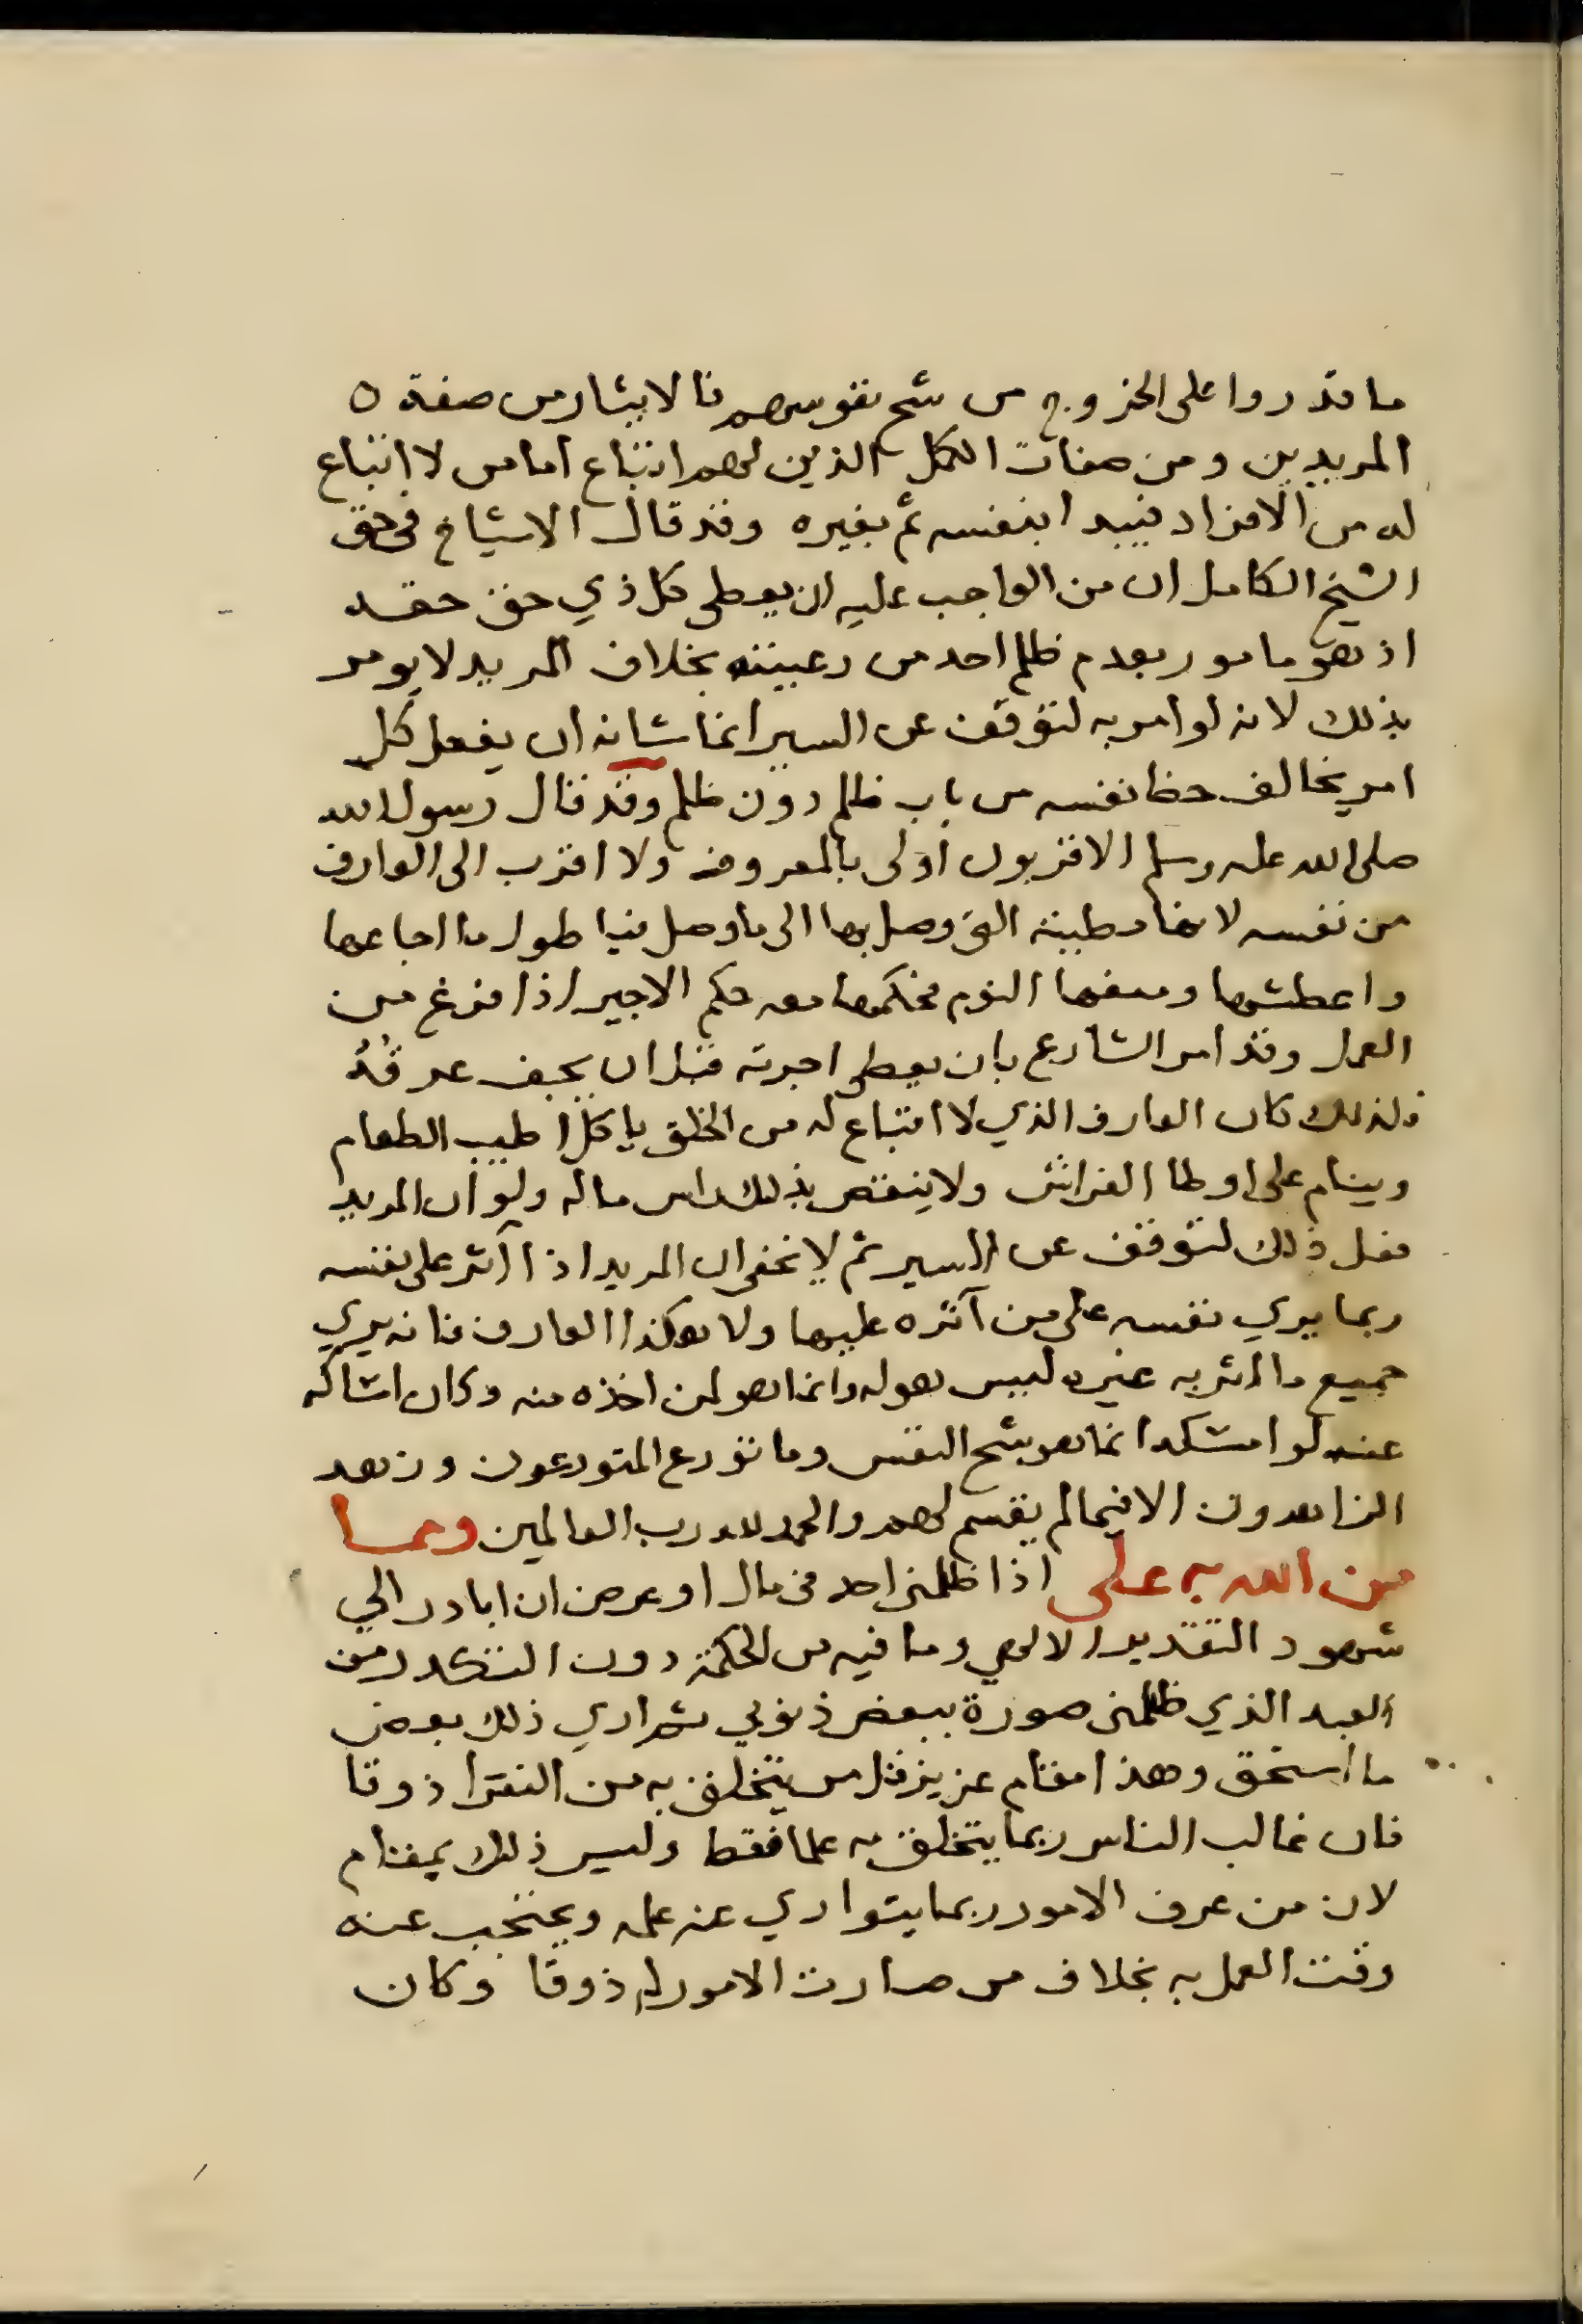 ما قدروا على الخروج من شح نفوسهم فالايثار من صفة ه
المريدين ومن صفات الكمل الذين لهم اتباع اما من لا اتباع
له من الافراد فيبدا بنفسه ثم بغيره وقد قال الاشياخ في حق
الشيخ الكامل ان من الواجب عليه ان يعطى كل ذي حق حقه
اذ هو مامور بعدم ظلم احد من رعيته بخلاف المريد لا يومر
بذلك لانه لو امر به لتوقف عن السير انما شانه ان يفعل كل
امر يخالف حظ نفسه من باب ظلم دون ظلم وقد قال رسول الله
صلى الله عليه وسلم الاقربون اولى بالمعروف ولا اقرب الى العارف
من نفسه لانها مطيته التي وصل بها الى ما وصل فيا طول ما اجاعها
واعطشها ومنعها النوم فحكمها معه حكم الاجير اذا فرغ من
العمل وقد امر الشارع بان يعطى اجرته قبل ان يجف عرقُهُ
فلذلك كان العارف الذي لا اتباع له من الخلق ياكل اطيب الطعام
وينام على اوطا الفراش ولا ينقص بذلك راس ماله ولو ان المريد
فعل ذلك لتوقف عن السير ثم لا يخفى ان المريد اذا آثر على نفسه
ربما يري نفسه على من آثره عليها ولا هكذا العارف فانه يري
جميع ما اثر به غيره ليس هو له وانما هو لمن اخذه منه وكان امساكه
عنه لو امسكه انما هو بشح النفس وما تورع المتورعون وزهد
الزاهدون الا فيما لم يقسم لهم والحمد لله رب العالمين ومما
من الله به على اذا ظلمني احد في مال او عرض ان ابادر الي
شهود التقدير الالهي وما فيه من الحكمة دون التكدر من
العبد الذي ظلمني صورة ببعض ذنوبي ثم اري ذلك بعض
ما استحق وهذا مقام عزيز قل من يتخلق به من الفقرا ذوقا
فان غالب الناس ربما يتخلق به علما فقط وليس ذلك بمقام
لان من عرف الامور ربما يتواري عنه علمه ويحتجب عنه
وقت العمل به بخلاف من صارت الامور له ذوقا وكان